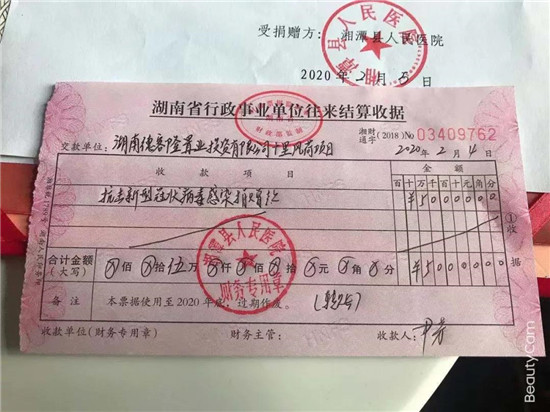 受捐赠方：湘潭县人民医院
2020年2月5日
湘潭县人民医院
湖南省行政事业单位往来结算收据
湘财通字 (2018) No 03409762
交款单位：湖南佳客隆置业投资有限公司十里风荷项目 2020年2月4日
收款项目 金额
百十万千百十元角分
抗击新型冠状病毒感染捐赠款 ¥5000000
①收据
合计金额（大写） ⊗佰⊗拾伍万⊗仟⊗佰⊗拾⊗元⊗角⊗分 ¥5000000
湘潭县人民医院
财务专用章
备注 本票据使用至2020年底，过期作废。（转账）
收款单位（财务专用章） 财务主管： 收款人：
BeautyCam